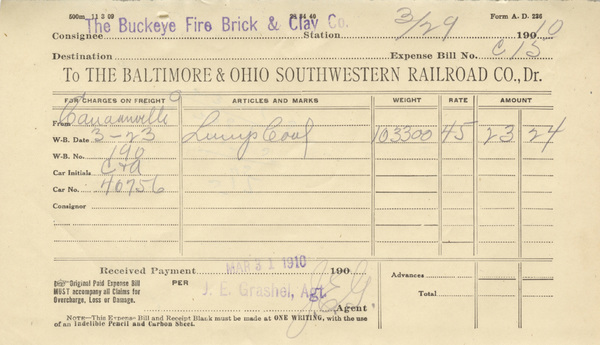 500m 11 3 09
Form A. D. 226
The Buckeye Fire Brick & Clay Co.
Consignee
Station 3/29 190 10
Destination
Expense Bill No. C15
To THE BALTIMORE & OHIO SOUTHWESTERN RAILROAD CO., Dr.
FOR CHARGES ON FREIGHT ARTICLES AND MARKS WEIGHT RATE AMOUNT
From
W-B. Date 3-23 Lump Coal 103300 45 23 24
W-B. No. 190
Car Initials C&A
Car No. 40756
Consignor
Received Payment MAR 31 1910 190 Advances
Original Paid Expense Bill PER
MUST accompany all Claims for J. E. Grashel, Agt Total
Overcharge, Loss or Damage. JEG Agent
NOTE—This Expense Bill and Receipt Blank must be made at ONE WRITING, with the use
of an Indelible Pencil and Carbon Sheet.